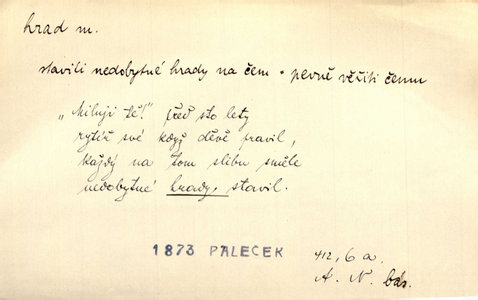 hrad m.
stavěti nedobytné hrady na čem • pevně věřiti čemu
„Miluji tě!" před sto lety
rytíř své když děvě pravil,
každý na tom slibu směle
nedobytné hrady, stavil.
1873 PALEČEK
412, 6 a.
A. N. bás.